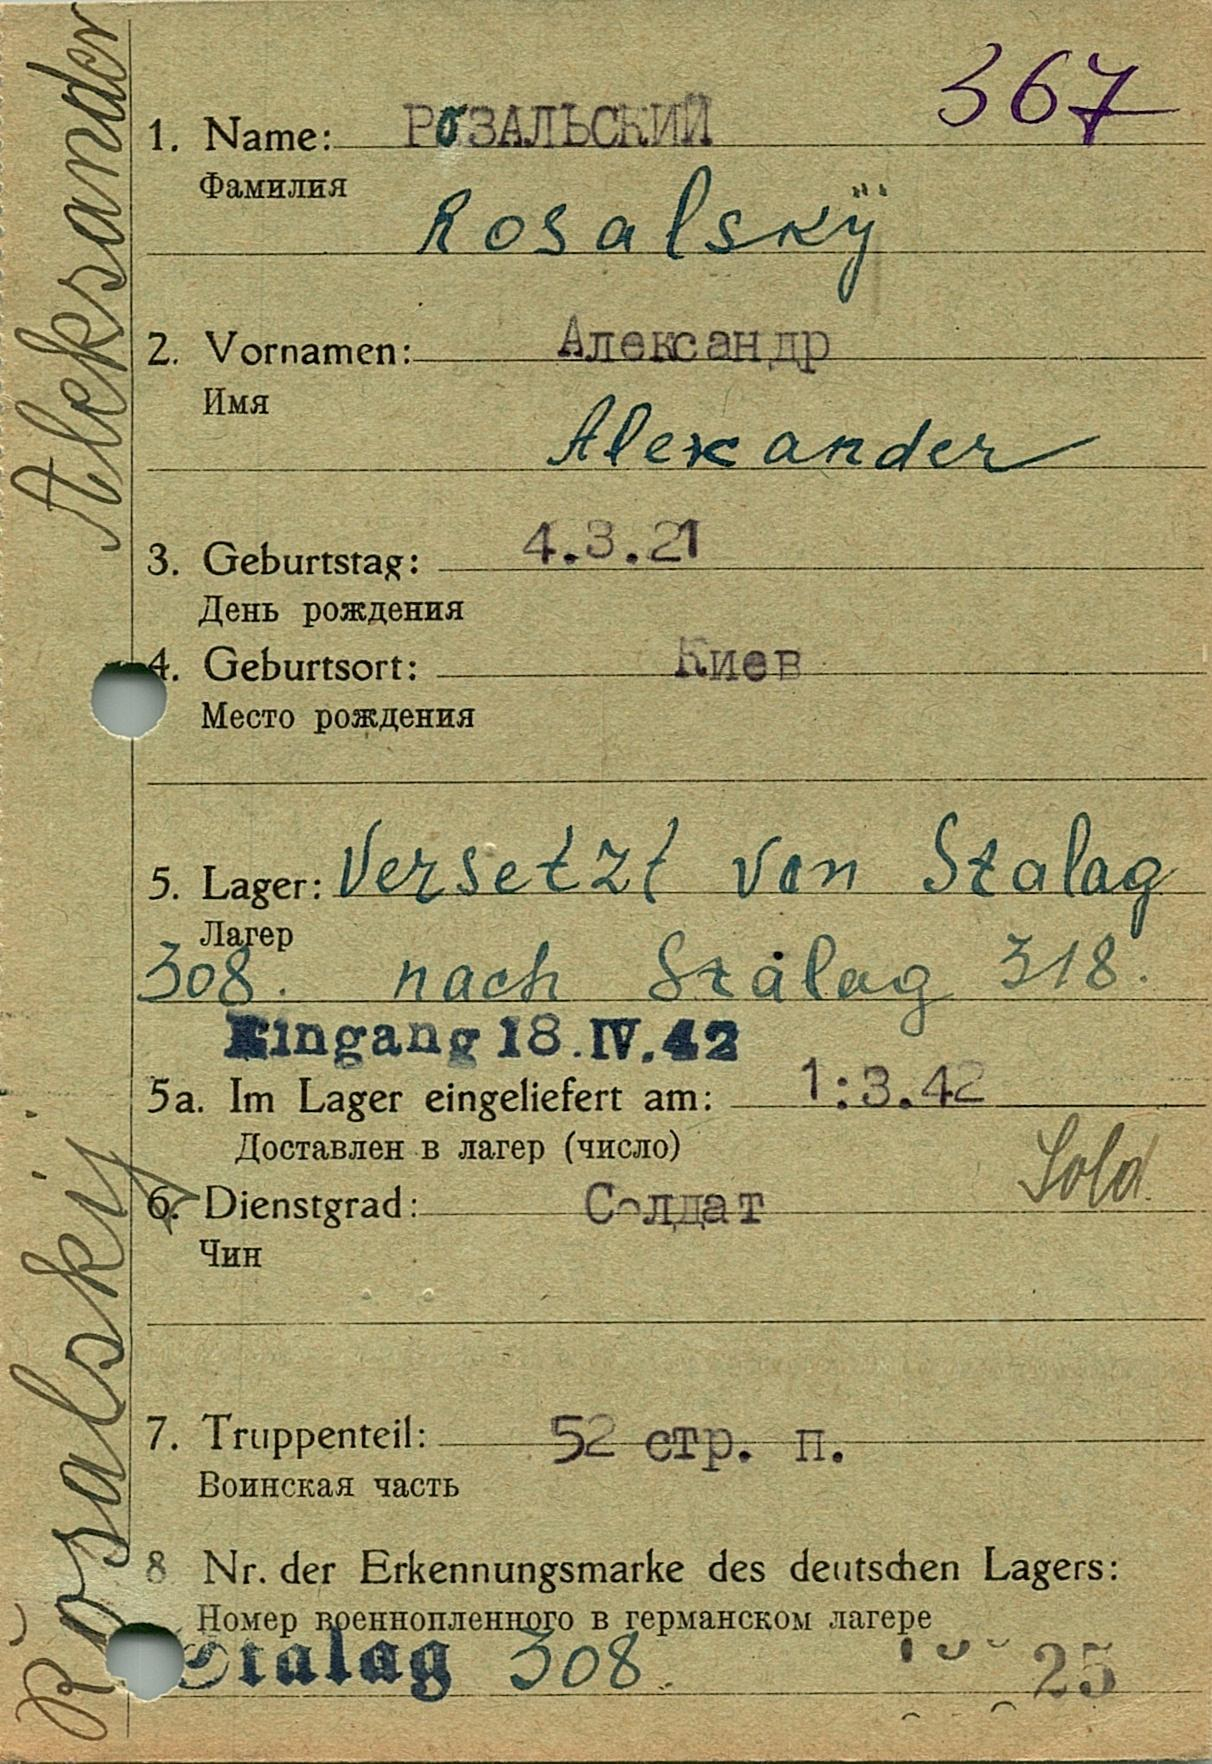 367
1. Name: РОЗАЛЬСКИЙ
Фамилия
Rosalskÿ
2. Vornamen: Александр
Имя
Alexander
3. Geburtstag: 4.3.21
День рождения
4. Geburtsort: Киев
Место рождения
5. Lager: Versetzt von Stalag
Лагер
308. nach Stalag 318.
Eingang 18.IV.42
5a. Im Lager eingeliefert am: 1:3.42
Доставлен в лагер (число)
Sold.
6. Dienstgrad: Солдат
Чин
7. Truppenteil: 52 стр. п.
Воинская часть
8 Nr. der Erkennungsmarke des deutschen Lagers:
Номер военнопленного в германском лагере
Stalag 308. 25
Rosalskij Aleksander